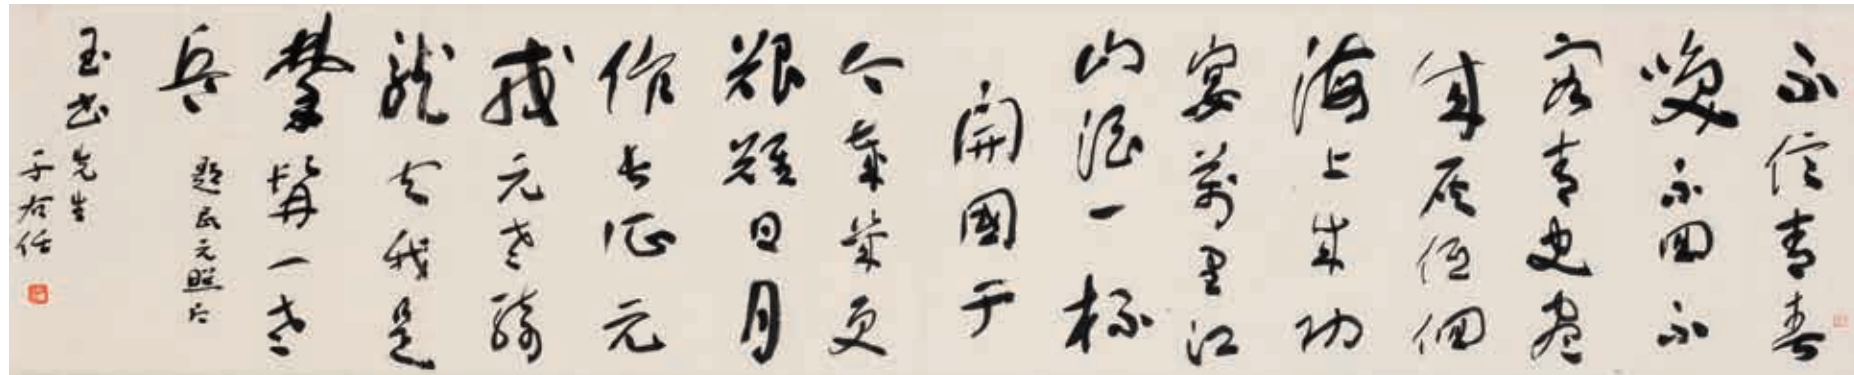 不信青春
喚不回不
容青史盡
成灰低佪
海上成功
宴萬里江
山酒一杯
開國于
今歲幾更
艱難日月
作長征元
戎元老騎
龍去我是
攀髯一老
兵
題民元照片
玉書先生
于右任